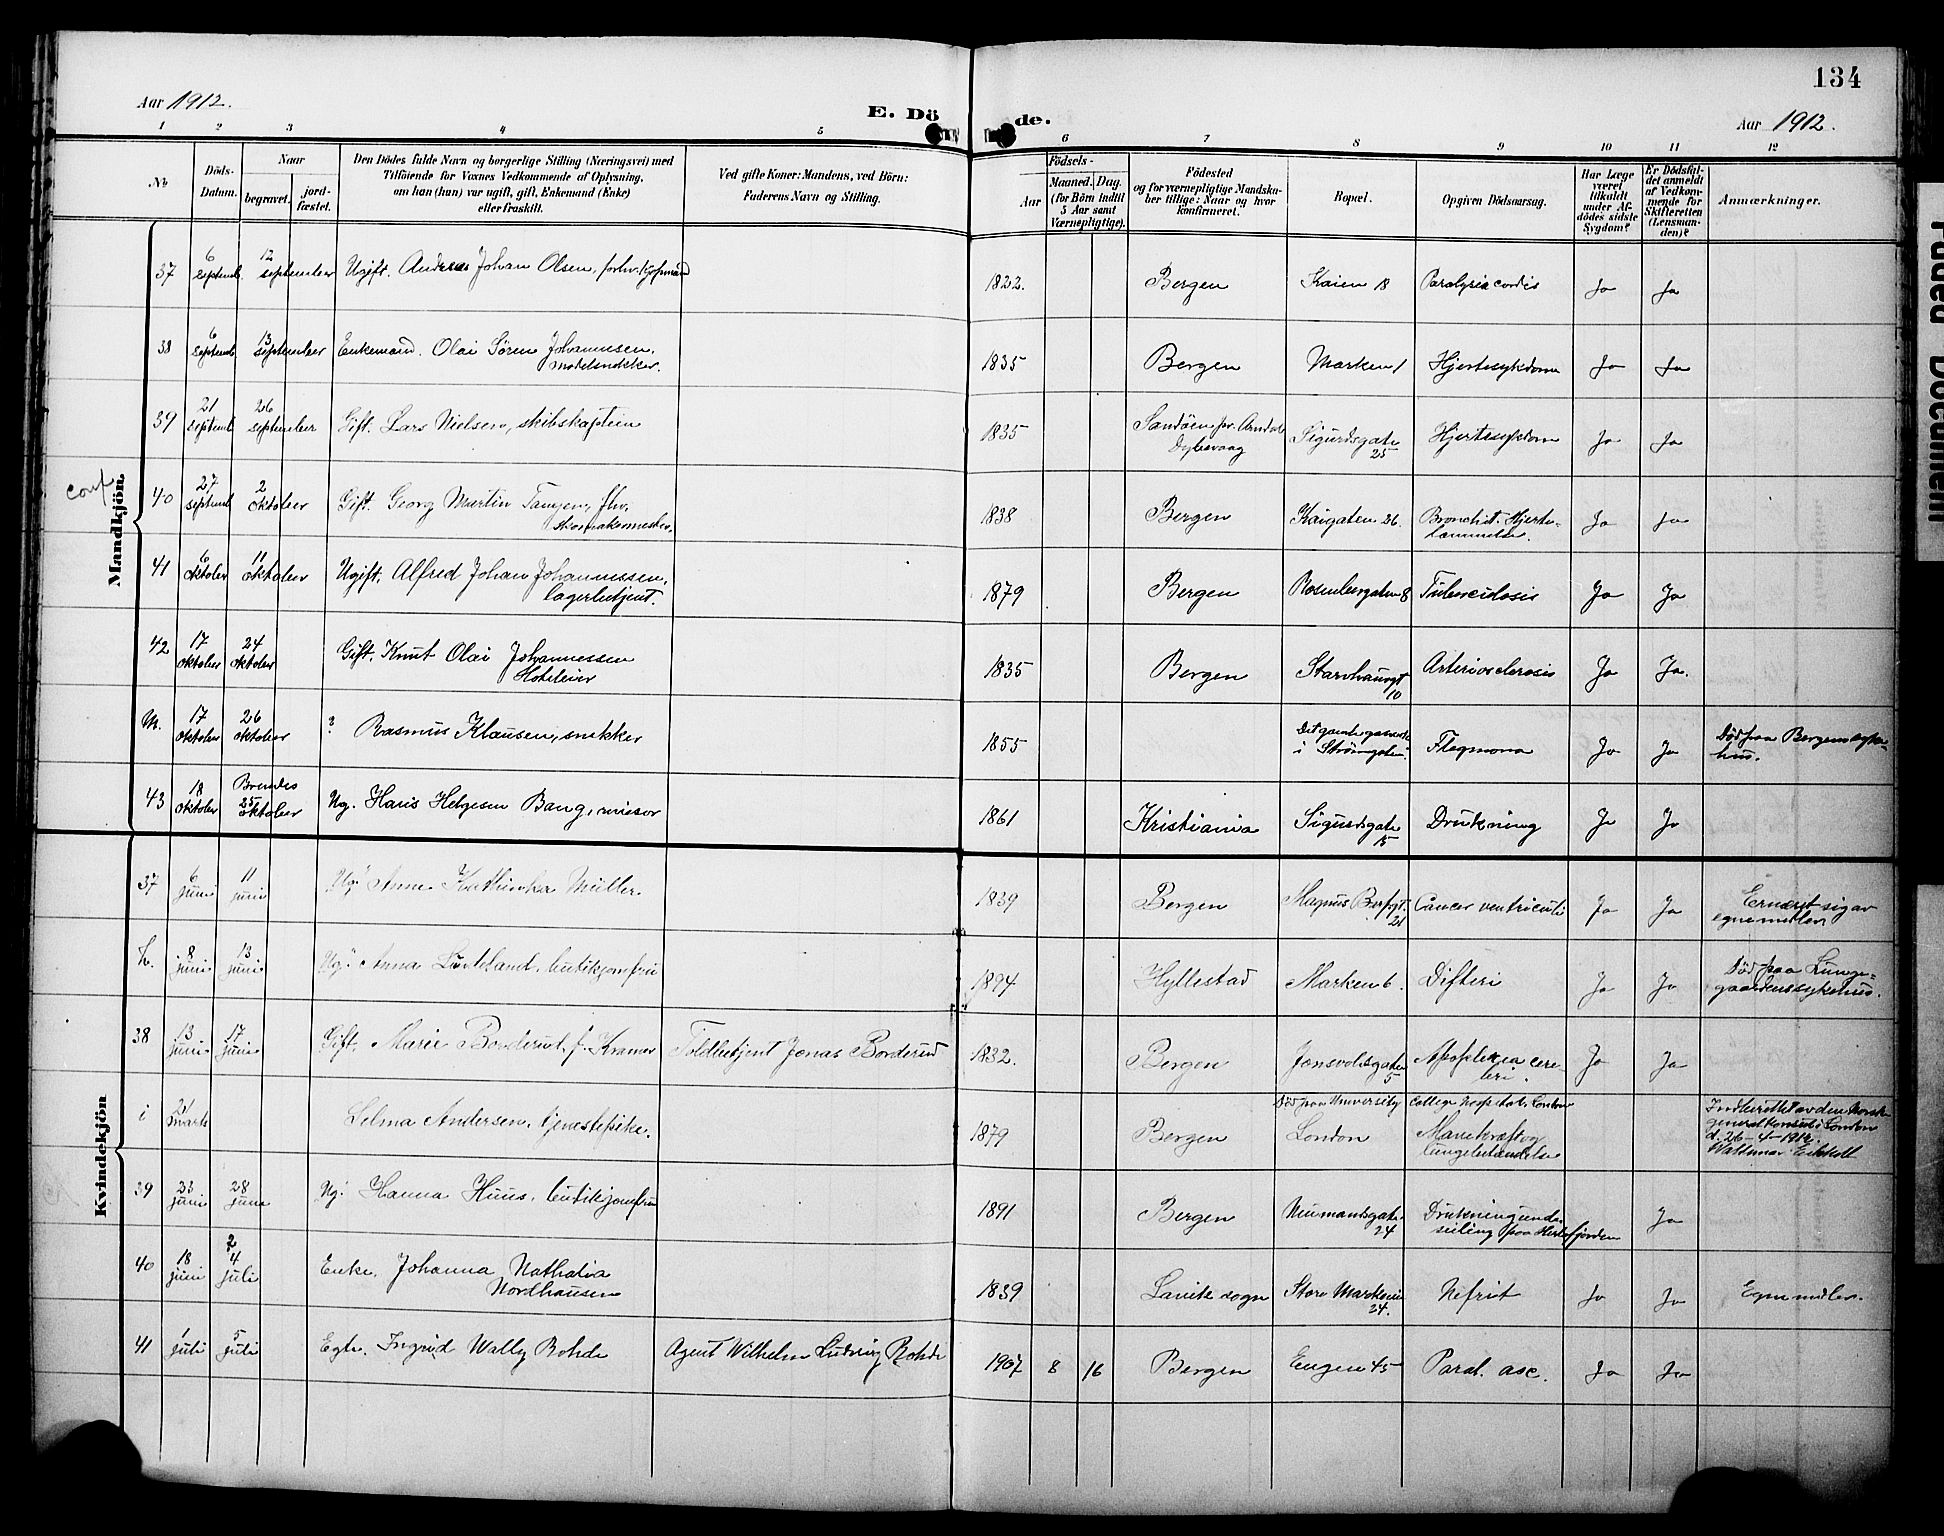 134
Aar 1912.
E. Dö
de.
Aar 1912.
1 2 3 4 5 6 7 8 9 10 11 12
No
Döds-
Datum.
Naar
begravet.
jord-
fæstet.
Den Dödes fulde Navn og borgerlige Stilling (Næringsvei) med
Tilföiende for Voxnes Vedkommende af Oplysning,
om han (hun) var ugift, gift, Enkemand (Enke)
eller fraskilt.
Ved gifte Koner: Mandens, ved Börn:
Faderens Navn og Stilling.
Födsels-
Aar
Maaned.
Dag.
(for Börn indtil
5 Aar samt
Værnepligtige).
Födested
og for værnepligtige Mandskaber
tillige: Naar og hvor
konfirmeret.
Bopæl.
Opgiven Dödsaarsag.
Har Læge
været
tilkaldt
under Af-
dödes sidste
Sygdom?
Er Dödsfal-
det anmeldt
af Vedkom-
mende for
Skifteretten
(Lensman-
den)?
Anmærkninger.
Mandkjön.
37 6 septemb. 12 september Ugift. Andreas Johan Olsen, forhv. 1822. Bergen Kaien 18 Paralysia cordis Ja Ja
38 6 septemb 13 september Enkemand. Olai Sören Johannessen. 1835 Bergen Marken 1 Hjertesykdom Ja Ja
39 21 septemb 26 september Gift. Lars Nielsen, skibskaptein 1835 Sandöen pr. Arendal
Dybevaag Sigurdsgate
25 Hjertesykdom Ja Ja
conf.
40 27 septemb 2 oktober Gift. Georg Martin Tangen, fhv.
skomakermester. 1838 Bergen Kaigaten 26. Bronchit. Hjerte-
lammelse. Ja Ja
41 6 oktober 11 oktober Ugift. Alfred Johan Johannessen,
lagerbetjent. 1879 Bergen Rosenberggaten 8 Tuberculosis Ja Ja
42 17 oktober 24 oktober Gift. Knut Olai Johannessen
Hoteleier 1835 Bergen Starvhusgt
10 Arteriosclerosis Ja Ja.
M. 17 oktober 26 oktober ? Rasmus Klausen, snekker 1855 Det gamle gasverk
i Strömgaten. Flegmone Ja Ja Död paa Bergens syke-
hus.
43 18 oktober Brendes
25 oktober Ug. Hans Helgesen Bang, revisor 1861 Kristiania Sigurdsgate
15 Drukning Ja Ja
Kvindekjön
37 6 juni 11 juni Ug. Anne Kathinka Müller. 1839 Bergen Magnus Barfsgt.
21 Cancer ventriculi Ja Ja Ernæret sig av
egne midler
L. 8 juni 13 juni Ug. Anna butikjomfru 1894 Hyllestad Marken 6. Difteri Ja Ja Död paa Lunge-
gaardens sykehus.
38 13 juni 17 juni Gift. Marie Borderud f. Kramer Toldbetjent Jonas Borderud 1832. Bergen Jonsvoldsgaten
5 Apoplexia cere-
bri. Ja Ja
i 21 marts Selma Andersen, tjenestepike. 1879 Bergen Död paa University College Hospital. London
London Mavekræft og
lungebetændelse Indberettet av den Norske
generalkonsul i London
d. 26-4-1912.
39 23 juni 28 juni Ug. Hanna Huus, butikjomfru 1891 Bergen Neumandsgate
24 Drukning under
seiling paa Herlefjorden Ja
40 18 juni 2 4 juli Enke. Johanna Nathalia
Nordhausen 1839 Lavik sogn Store Markevei
24. Nefrit Ja Ja Egne midler.
41 1 juli 5 juli Egte. Ingrid Wally Rohde Agent Wilhelm Ludvig Rohde 1907 8 16 Bergen Engen 45 Paral. asc. Ja Ja
Faded Document